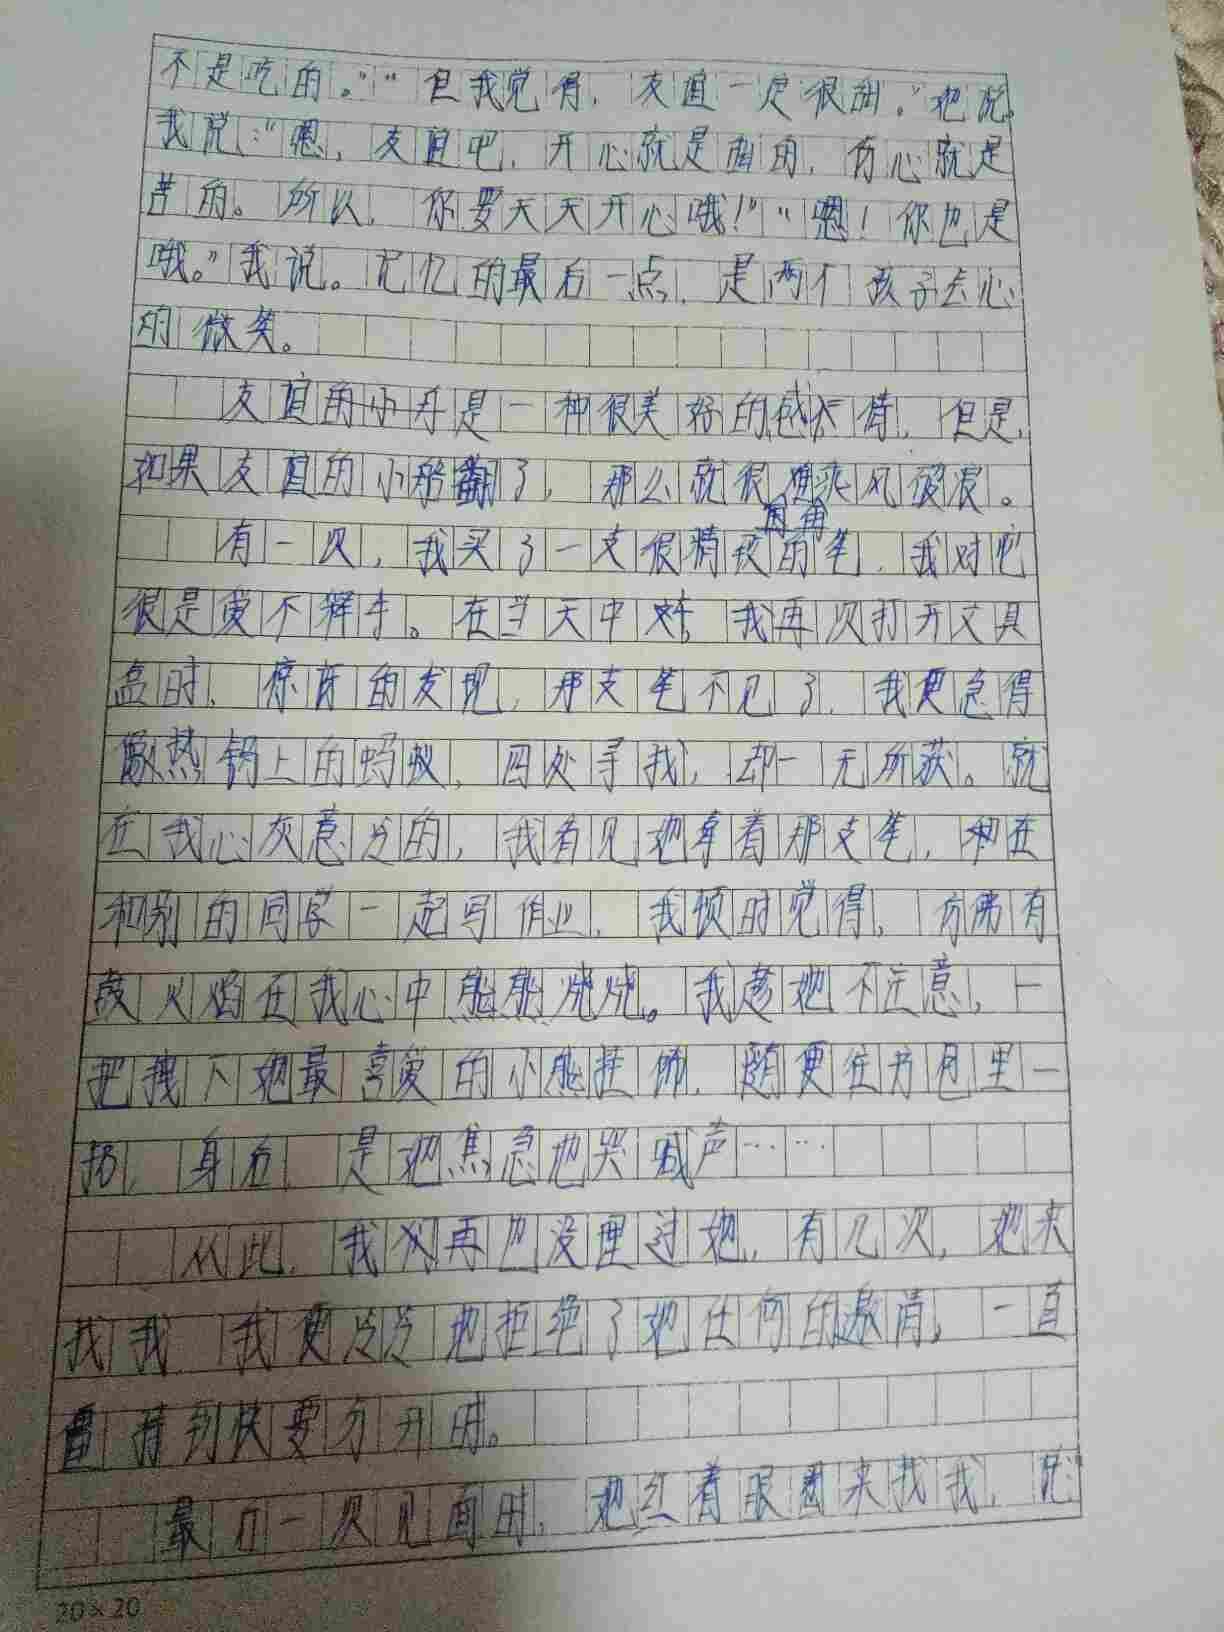 不是吃的。”“但我觉得，友谊一定很甜。”她说。
我说：“嗯，友谊吧，开心就是甜的，伤心就是
苦的。所以，你要天天开心哦！”“嗯！你也是
哦。”我说。记忆的最后一点，是两个孩子会心
的微笑。
友谊的小舟是一种很美好的感情，但是，
如果友谊的小船翻了，那么就很难乘风破浪。
有一次，我买了一支很精致的笔，我对它
很是爱不释手。在当天中午，我再次打开文具
盒时，惊讶的发现，那支笔不见了，我更急得
像热锅上的蚂蚁，四处寻找，却一无所获。就
在我心灰意冷的，我看见她拿着那支笔，在
和别的同学一起写作业，我顿时觉得，仿佛有
鼓火焰在我心中熊熊燃烧。我趁她不注意，一
把拽下她最喜爱的小熊挂饰，随便往书包里一
扔，身后，是她焦急地哭喊声……
从此，我再也没理过她，有几次，她来
找我，我便冷冷地拒绝了她任何的邀请，一直
持到快要分开时。
最后一次见面时，她红着眼圈来找我，说：“
20×20